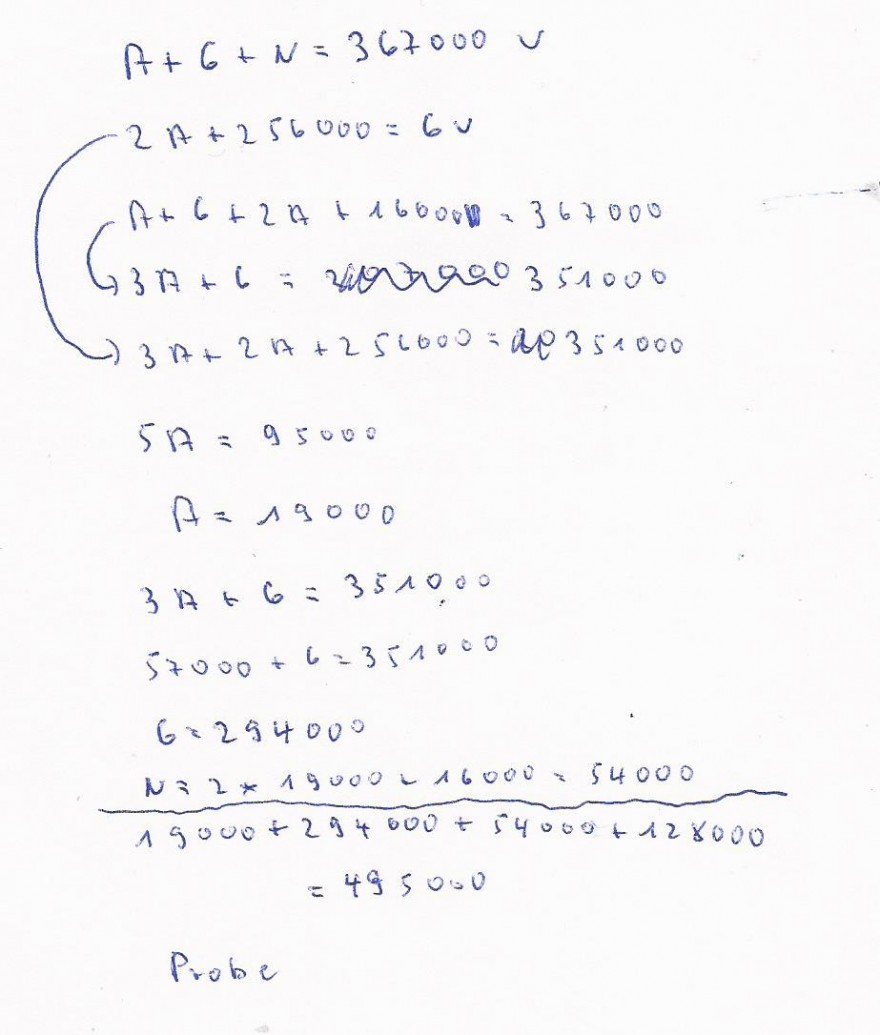 A + G + N = 367000 ✓
2A + 256000 = G ✓
A + G + 2A + 16000 = 367000
3A + G = 351000
3A + 2A + 256000 = 351000
5A = 95000
A = 19000
3A + G = 351000
57000 + G = 351000
G = 294000
N = 2 * 19000 - 16000 = 54000
19000 + 294000 + 54000 + 128000
= 495000
Probe